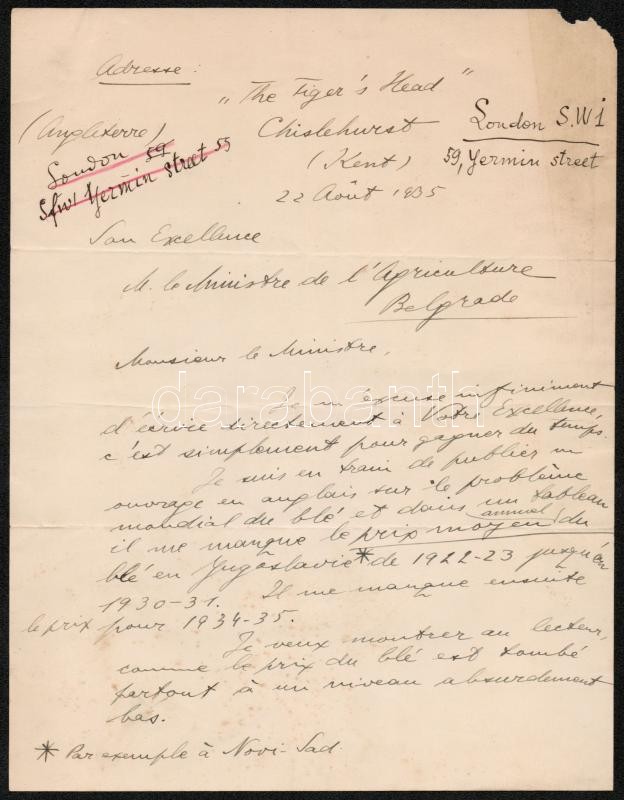 Adresse:
"The Tiger's Head"
(Angleterre)
Chislehurst
London S.W1
London 59
59, Yermin street
Yermin Street 55
(Kent)
22 Août 1935
Son Excellence
M. le Ministre de l'Agriculture
Belgrade
Monsieur le Ministre,
Je m'excuse infiniment
d'écrire directement à Votre Excellence,
c'est simplement pour gagner du temps.
Je suis en train de publier un
ouvrage en anglais sur le problème
mondial du blé et dans un tableau
il me manque le prix moyen (annuel) du
blé en Yugoslavie * de 1922-23 jusqu'en
1930-31. Il me manque ensuite
le prix pour 1934-35.
Je veux montrer au lecteur,
comme le prix du blé est tombé
partout à un niveau absurdement
bas.
* Par exemple à Novi-Sad.
darabanth